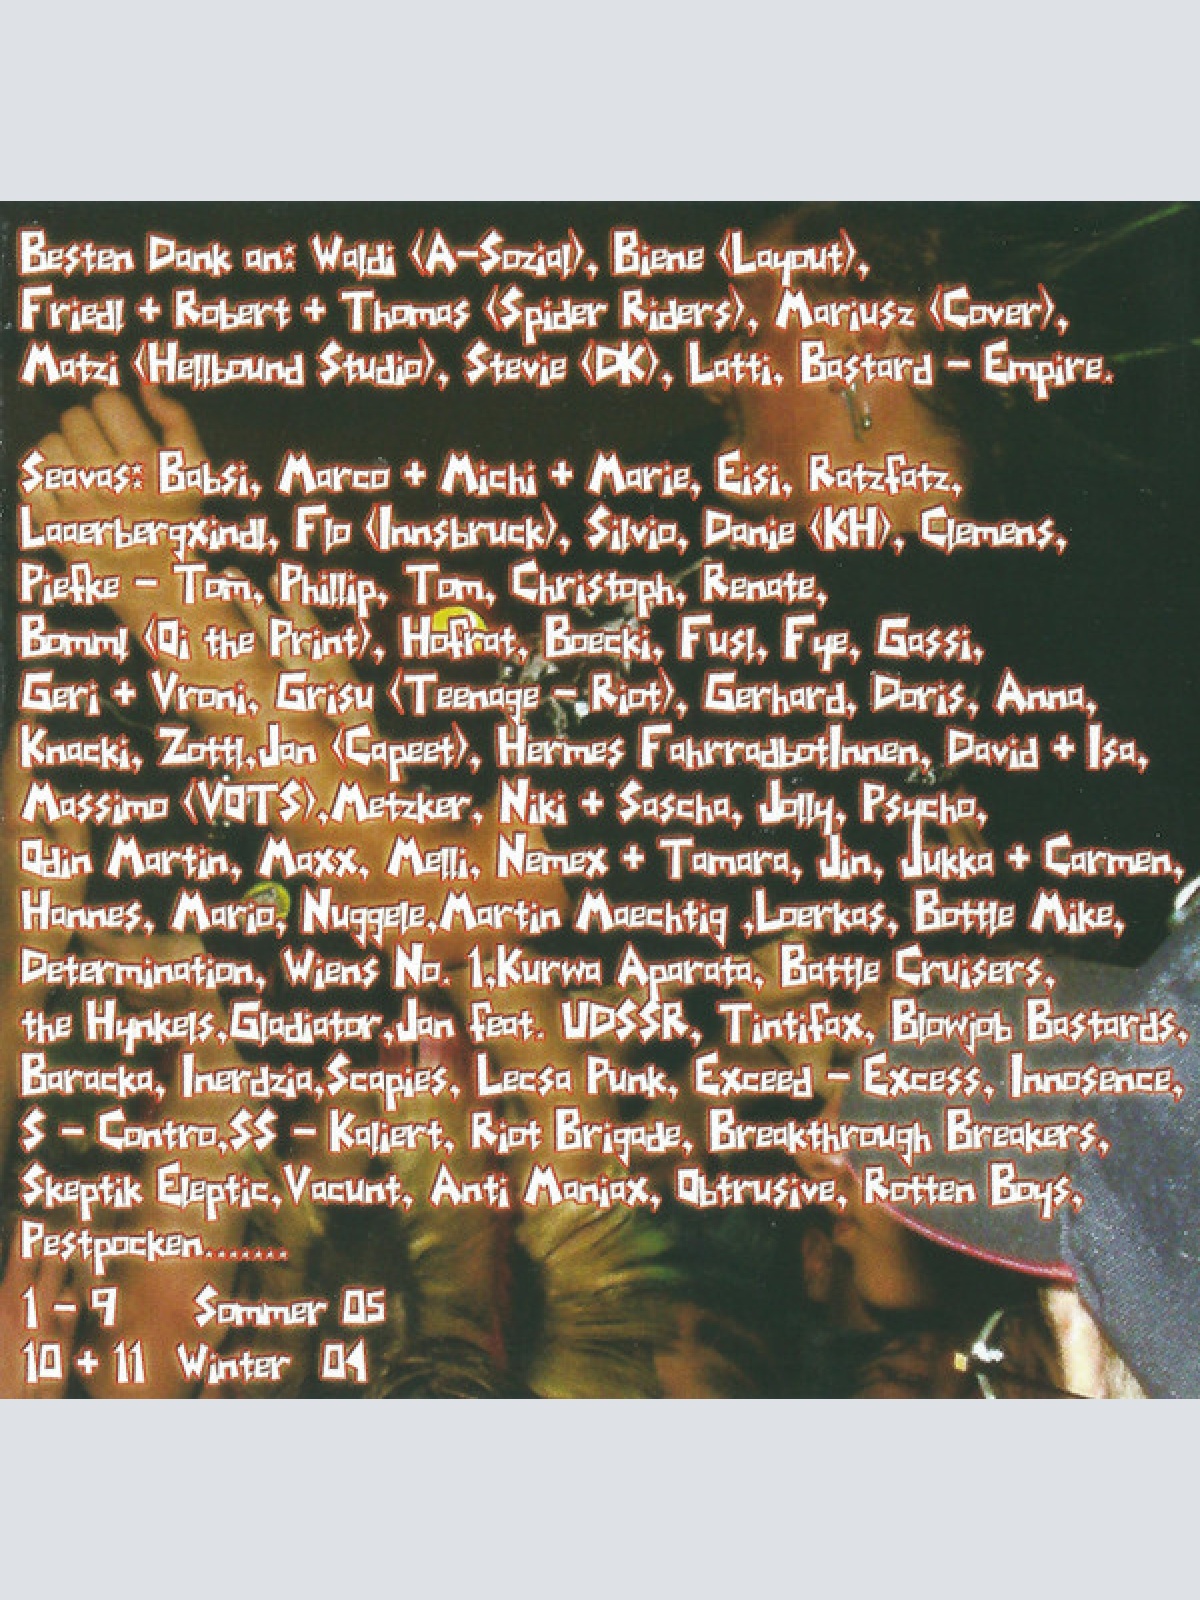 Besten Dank an: Waldi (A-Sozial), Biene (Layout),
Friedl + Robert + Thomas (Spider Riders), Mariusz (Cover),
Matzi (Hellbound Studio), Stevie (DK), Latti, Bastard - Empire.
Seavas: Babsi, Marco + Michi + Marie, Eisi, Ratzfatz,
Laaerbergxindl, Flo (Innsbruck), Silvio, Danie (KH), Clemens,
Piefke - Tom, Phillip, Tom, Christoph, Renate,
Bomml (Oi the Print), Hofrat, Boecki, Fusl, Fye, Gassi,
Geri + Vroni, Grisu (Teenage - Riot), Gerhard, Doris, Anna,
Knacki, Zottl,Jan (Capeet), Hermes FahrradbotInnen, David + Isa,
Massimo (VOTS),Metzker, Niki + Sascha, Jolly, Psycho,
Odin Martin, Maxx, Melli, Nemex + Tamara, Jin, Jukka + Carmen,
Hannes, Mario, Nuggele,Martin Maechtig ,Loerkas, Bottle Mike,
Determination, Wiens No. 1,Kurwa Aparata, Battle Cruisers,
the Hynkels,Gladiator,Jan feat. UDSSR, Tintifax, Blowjob Bastards,
Baracka, Inerdzia,Scapies, Lecsa Punk, Exceed - Excess, Innosence,
S - Contro,SS - Kaliert, Riot Brigade, Breakthrough Breakers,
Skeptik Eleptic,Vacunt, Anti Maniax, Obtrusive, Rotten Boys,
Pestpocken.......
1 - 9 Sommer 05
10 + 11 Winter 04